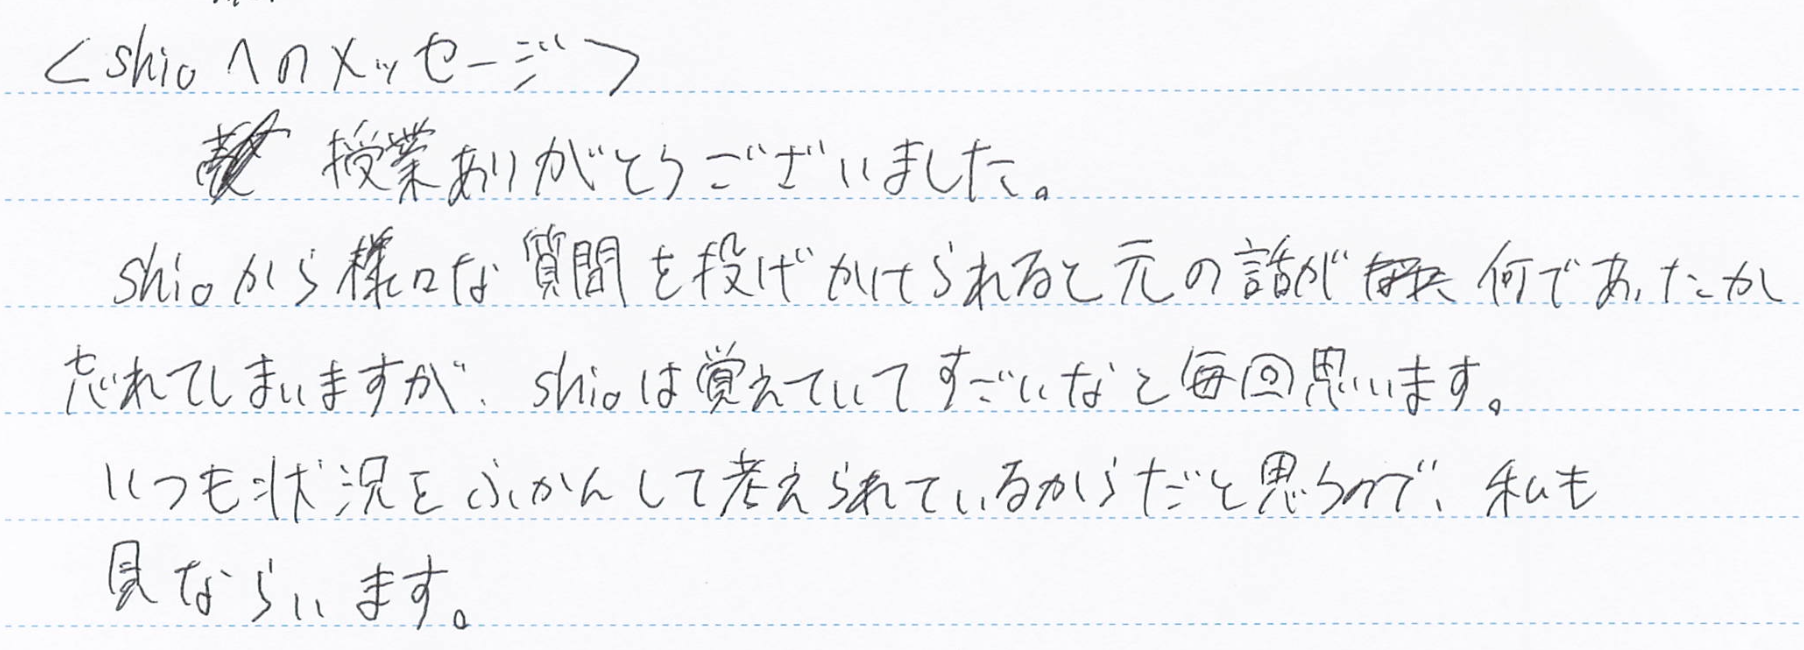 <shioへのメッセージ>
授業ありがとうございました。
shioから様々な質問を投げかけられると元の話が何であったか
忘れてしまいますが、shioは覚えていてすごいなと毎回思います。
いつも状況をふかんして考えられているからだと思うので、私も
見ならいます。